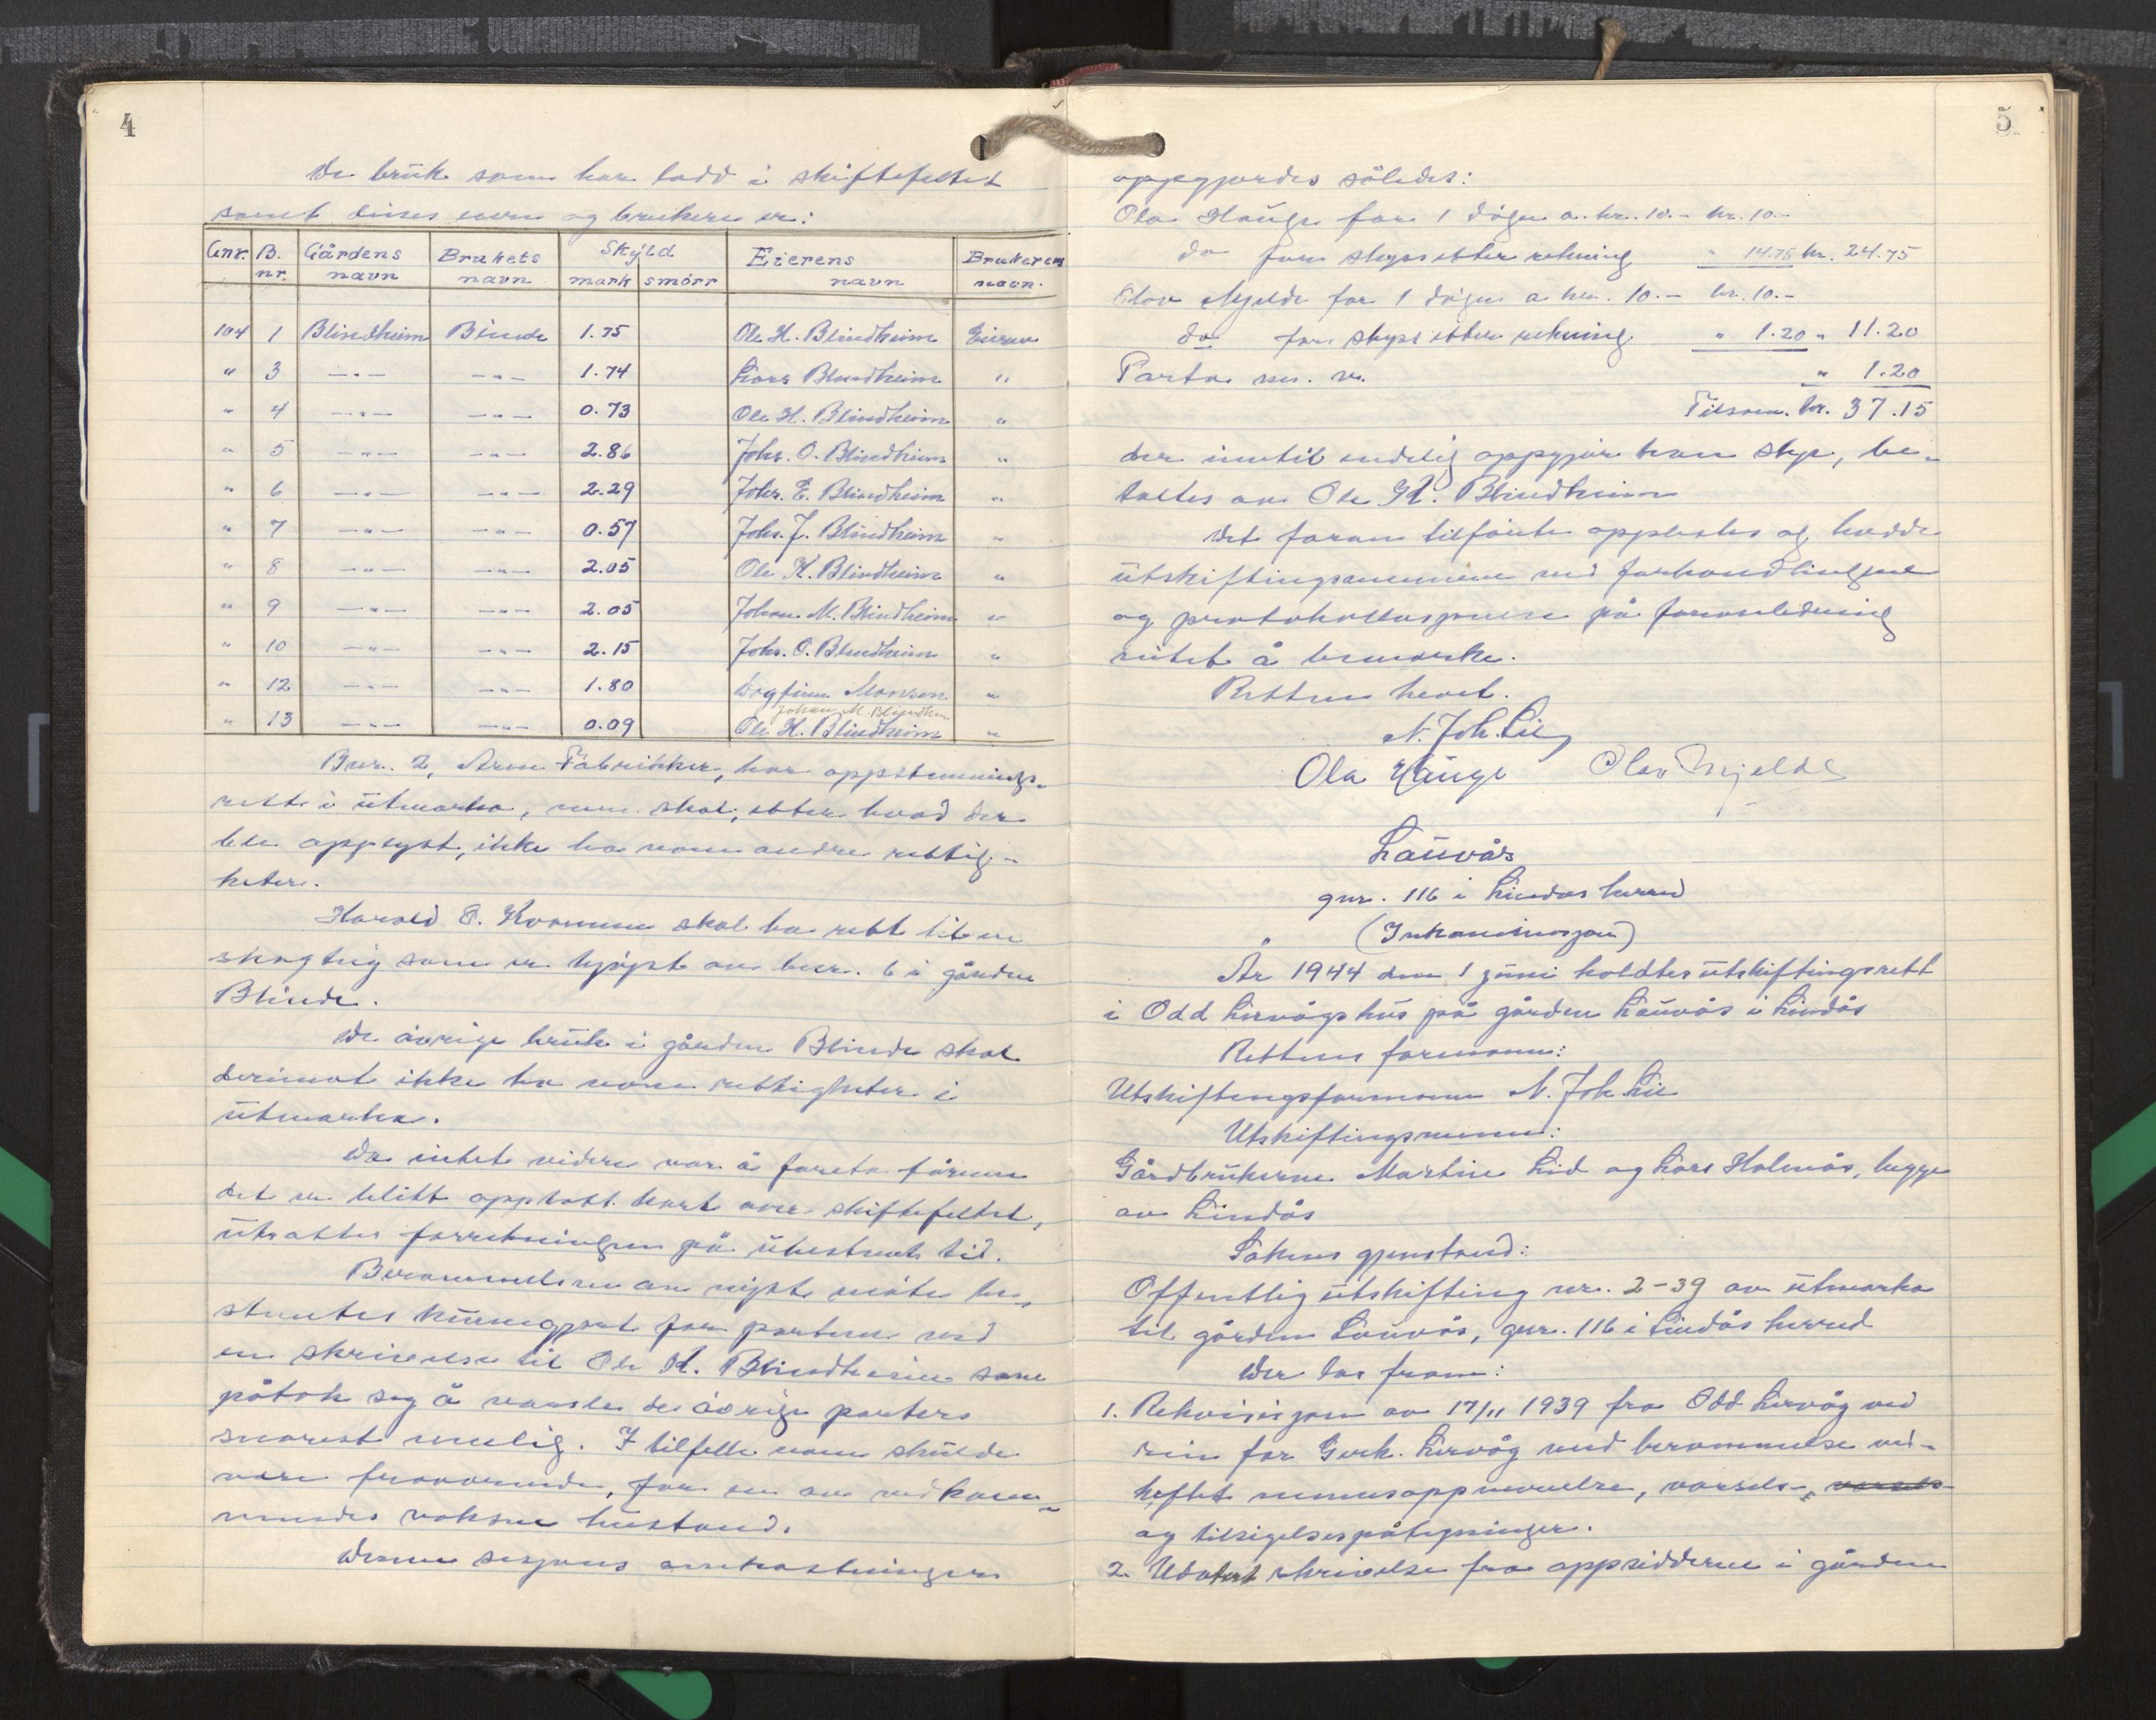 4
De bruk som har lodd i skiftefeltet
samt disses eiere og brukere er:
Gnr. B. nr. Gårdens navn Brukets navn Skyld mark smörr Eierens navn Brukerens navn.
104 1 Blindheim Blinde 1.75 Ole H. Blindheim Eieren
" 3 -"- -"- 1.74 Lars Blindheim "
" 4 -"- -"- 0.73 Ole H. Blindheim "
" 5 -"- -"- 2.86 Johs. O. Blindheim "
" 6 -"- -"- 2.29 Johs. E. Blindheim "
" 7 -"- -"- 0.57 Johs. J. Blindheim "
" 8 -"- -"- 2.05 Ole K. Blindheim "
" 9 -"- -"- 2.05 Johan M. Blindheim "
" 10 -"- -"- 2.15 Johs. O. Blindheim "
" 12 -"- -"- 1.80 Dagfinn Monsen "
Johan M. Blindheim
" 13 -"- -"- 0.09 Ole H. Blindheim "
Bnr. 2, Arne Fabrikker, har oppdemnings-
rett i utmarka, men skal, etter hvad der
ble opplyst, ikke ha noen andre rettig-
heter.
Harald E. Kvamme skal ha rett til en
skogteig som er kjøpt av bnr. 6 i gården
Blinde.
De øvrige bruk i gården Blinde skal
derimot ikke ha noen rettigheter i
utmarka.
Da intet videre var å foreta førenn
det er blitt opptatt kart over skiftefeltet,
utsattes forretningen på ubestemt tid.
Berammelsen av neste møte be-
stemtes kunngjort for partene ved
en skrivelse til Ole K. Blindheim som
påtok seg å varsle de øvrige parter
snarest mulig. I tilfelle noen skulde
være fraværende, for en av vedkom-
mendes voksne husstand.
Denne sesjons omkostninger
5
oppgjordes således:
Ola Hauge for 1 døgn a kr. 10.- kr. 10.-
do for skyss etter rekning " 14.75 kr. 24.75
Olav Mjelde for 1 døgn a kr. 10.- kr. 10.-
do for skyss etter rekning " 1.20 " 11.20
Porto m. v. " 1.20
Tilsam. kr. 37.15
der inntil endelig oppgjør kan skje, be-
taltes av Ole K. Blindheim
Det foran tilførte opplestes og hadde
utskiftingsmennene ved forhandlingene
og protokollasjonen på foranledning
intet å bemerke.
Retten hevet.
N. Joh. Lie
Ola Hauge Olav Mjelde
Lauvås
gnr. 116 i Lindås herred
(Inkaminasjon)
År 1944 den 1 juni holdtes utskiftingsrett
i Odd Lervågs hus på gården Lauvås i Lindås
Rettens formann:
Utskiftingsformann N. Joh. Lie
Utskiftingsmenn:
Gårdbrukerne Martin Lid og Lars Holmås, begge
av Lindås
Sakens gjenstand:
Offentlig utskifting nr. 2-39 av utmarka
til gården Lauvås, gnr. 116 i Lindås herred
Der las fram:
1. Rekvisisjon av 17/11 1939 fra Odd Lervåg ved
sin far Gerh. Lervåg med berammelse ved-
heftet mennsoppnevnelse, varsels-, varsels-
og tilsigelsespåtegninger.
2. Udatert skrivelse fra oppsidderne i gården